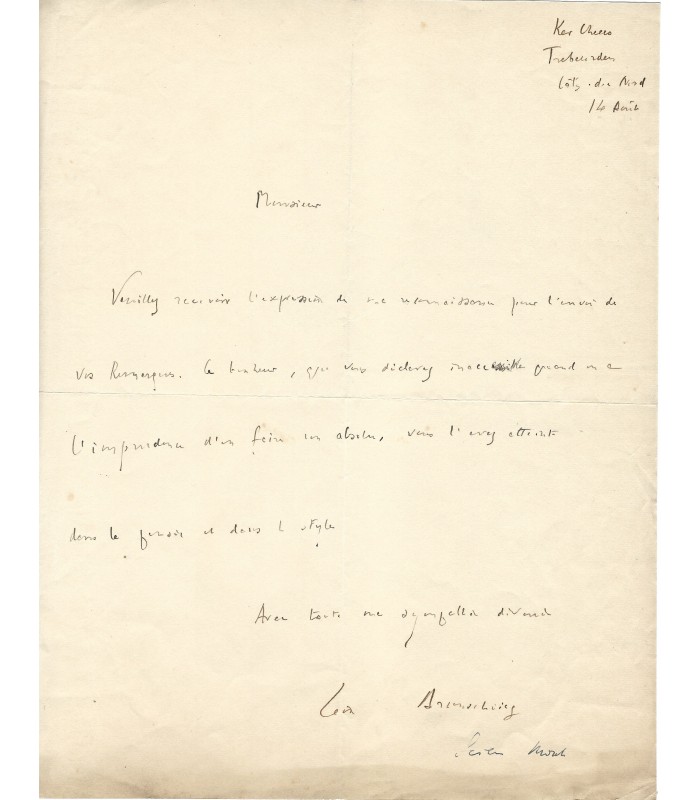 Ker
Trebeurden
Côtes-du-Nord
14 Août
Monsieur
Veuillez recevoir l'expression de ma reconnaissance pour l'envoi de
vos Remarques. Le bonheur, que vous déclarez inaccessible quand on a
l'imprudence d'en faire un absolu, vous l'avez atteint
dans la pensée et dans le style.
Avec toute ma sympathie
Léon Brunschvicg